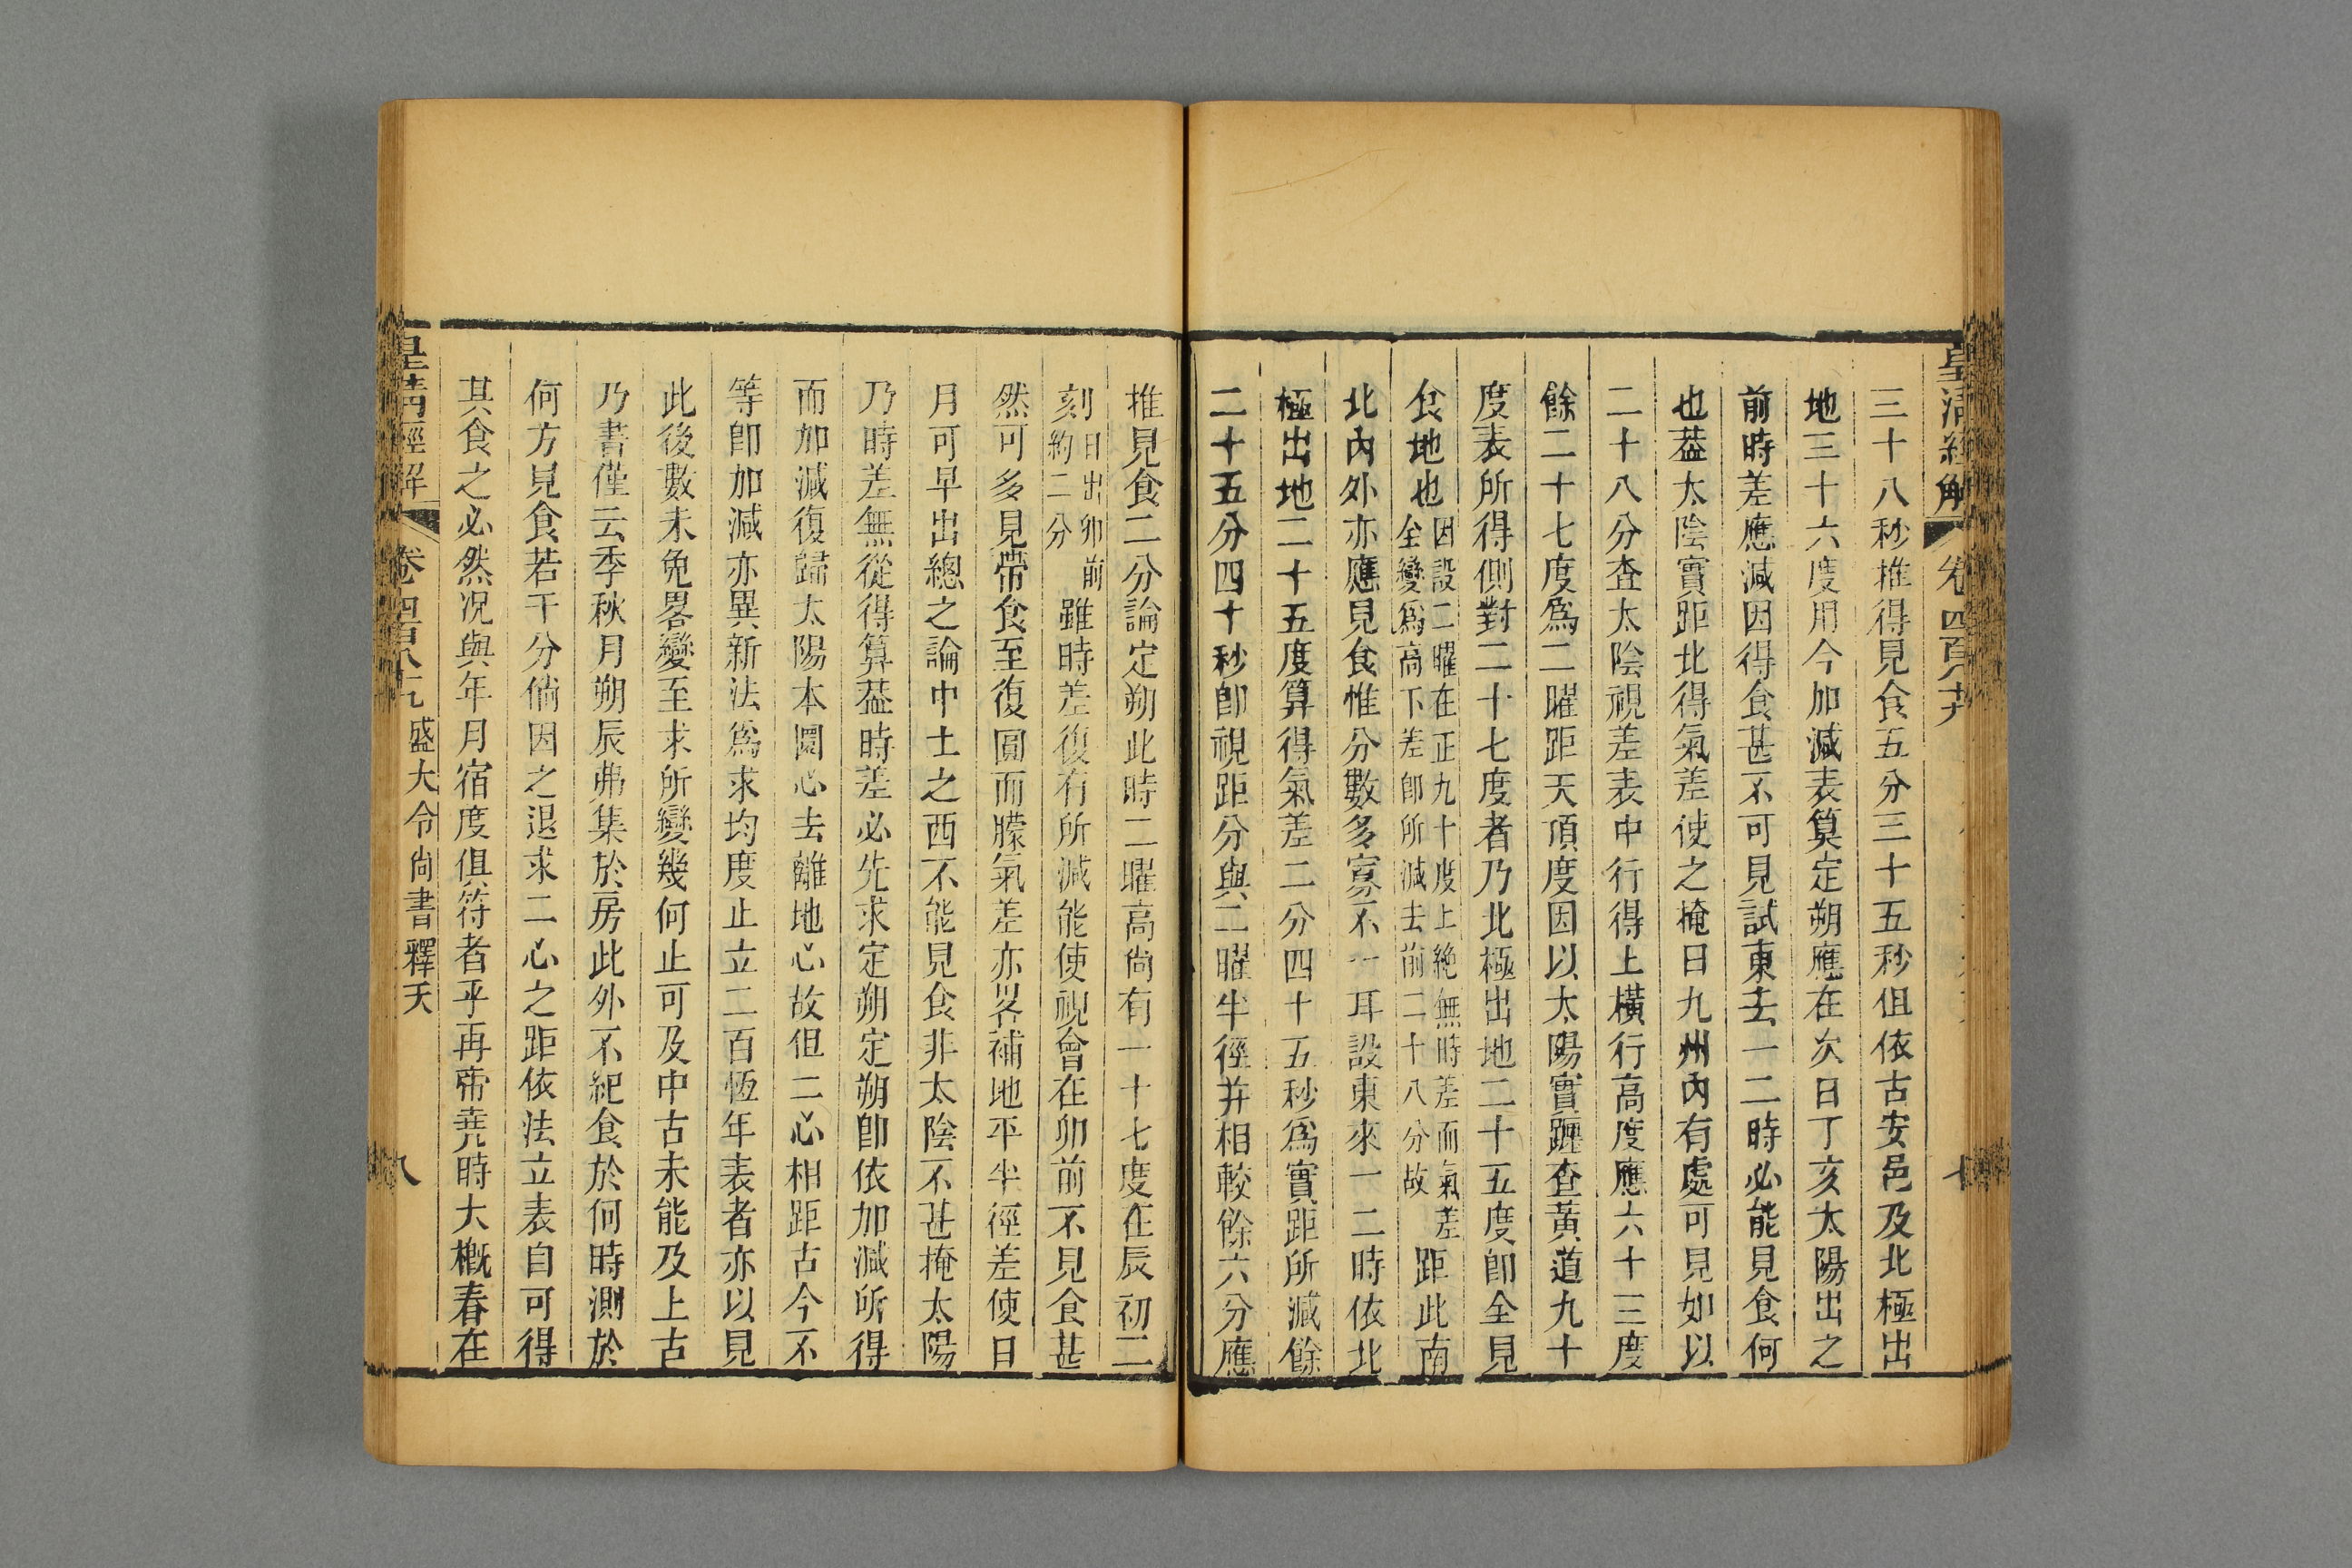 皇清經解 卷四百八十九
三十八秒推得見食五分三十五秒但依古安邑及北極出
地三十六度用今加減表算定朔應在次日丁亥太陽出之
前時差應減因得食甚不可見試東去一二時必能見食何
也葢太陰實距北得氣差使之掩日九州內有處可見如以
二十八分查太陰視差表中行得上橫行高度應六十三度
餘二十七度爲二曜距天頂度因以太陽實躔查黃道九十
度表所得側對二十七度者乃北極出地二十五度卽全見
食地也因設二曜在正九十度上絶無時差而氣差全變爲高下差卽所減去前二十八分故距此南
北內外亦應見食惟分數多寡不一耳設東來一二時依北
極出地二十五度算得氣差二分四十五秒爲實距所減餘
二十五分四十秒卽視距分與二曜半徑并相較餘六分應
推見食二分論定朔此時二曜高尙有一十七度在辰初二
刻日出卯前約二分雖時差復有所減能使視會在卯前不見食甚
然可多見帶食至復圓而朦氣差亦畧補地平半徑差使日
月可早出總之論中土之西不能見食非太陰不甚掩太陽
乃時差無從得算葢時差必先求定朔定朔卽依加減所得
而加減復歸太陽本圜心去離地心故但二心相距古今不
等卽加減亦異新法爲求均度止立二百恆年表者亦以見
此後數未免畧變至求所變幾何止可及中古未能及上古
乃書僅云季秋月朔辰弗集於房此外不紀食於何時測於
何方見食若干分倘因之退求二心之距依法立表自可得
其食之必然况與年月宿度俱符者乎再帝堯時大概春在
皇清經解 卷四百八十九 盛大令尙書釋天 八